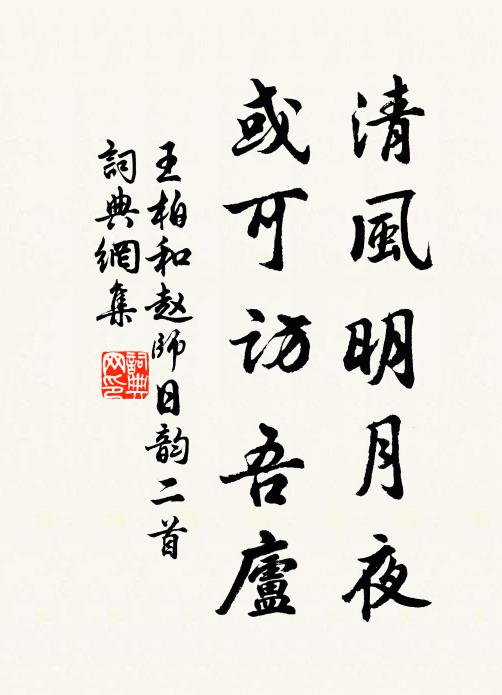 清風明月夜
或可訪吾廬
王柏和赵師日韵二首
詞典網集
詞典网印